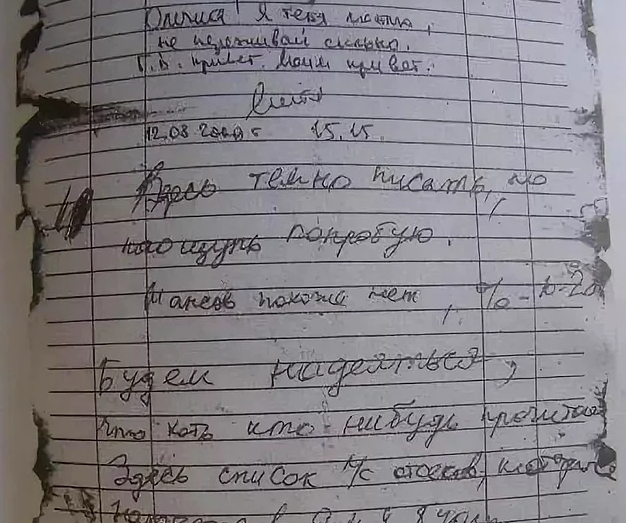 Олечка! Я тебя люблю,
не переживай сильно.
Г.В. привет. Моим привет.
12.08.2000 г 15.15.
Здесь темно писать, но
наощупь попробую.
Шансов похоже нет, %-10-20
Будем надеяться,
что хоть кто нибудь прочитает
Здесь список л/с отсеков, которые